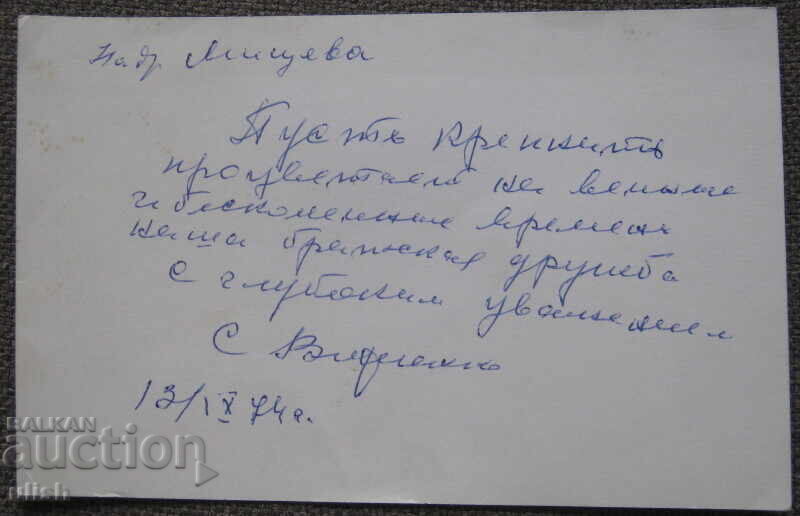 На др. Мицева
Пусть крепнить
процветает на вечные
и бесконечные времена
наша братская дружба
С глубоким уважением
С
13/IX 74 г.
BALKAN
auction
ulish